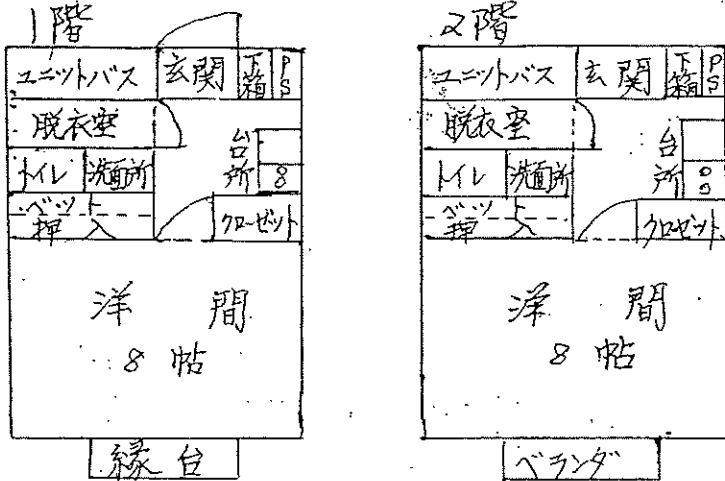 1階
ユニットバス 玄関 下箱 PS
脱衣室
台所
トイレ 洗面所
ベット
押入
クローゼット
洋間
8帖
縁台
2階
ユニットバス 玄関 下箱 PS
脱衣室
台所
トイレ 洗面所
ベット
押入
クロゼット
洋間
8帖
ベランダ